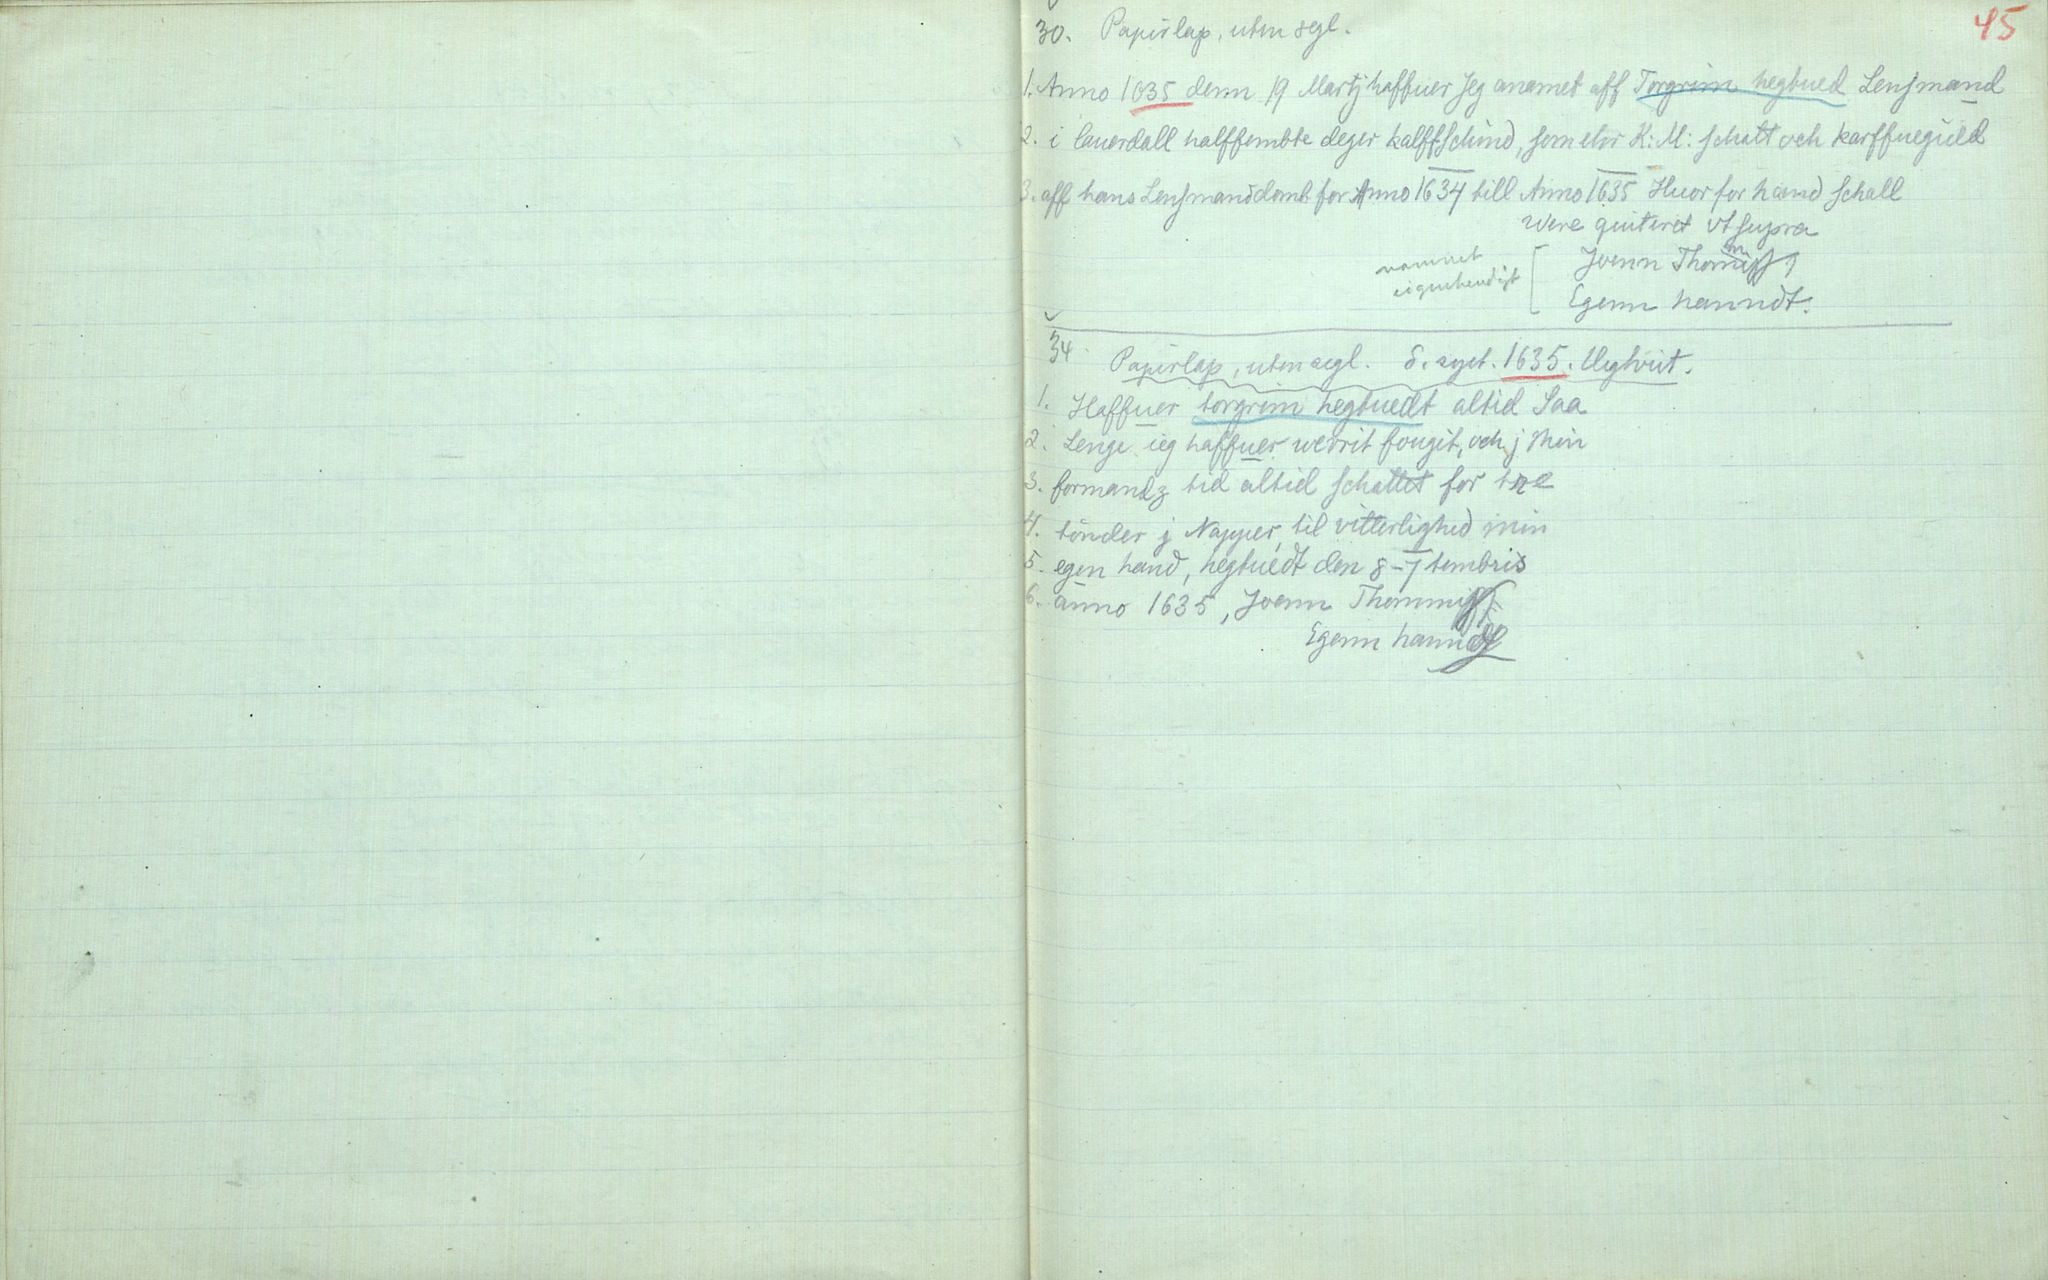 45
30. Papirlap, uten segl.
1. Anno 1635 denn 19 Martj haffuer Jeg anamet aff Torgrim hegtued Lensmand
2. i lauerdall halffembte deger kalffschind, som er K: M: schatt och karffueguld
3. aff hans Lensmandsdomb for Anno 1634 till Anno 1635 Huor for hand schall
Were quiteret vt supra
navnet egenhendigt [ Joenn Thommss
Egenn hanndt.
34. Papirlap, uten segl. 8. sept. 1635. Hegtvet.
1. Haffuer torgrim hegtuedt altid Saa
2. Lenge ieg haffuer werrit fougit, och j Min
3. formandz tid altid schattet for tre
4. tönder j Nappuer, til vitterlighed min
5. egen hand, hegtuedt den 8-7tembris
6. anno 1635, Joenn Thommss
Egenn hanndt